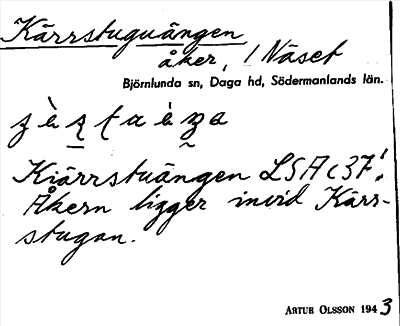 Kärrstuguängen
åker, / Näset
Björnlunda sn, Daga hd, Södermanlands län.
Kiärrstuängen LSA c 37!
Åkern ligger invid Kärr-
stugan.
ARTUR OLSSON 1943